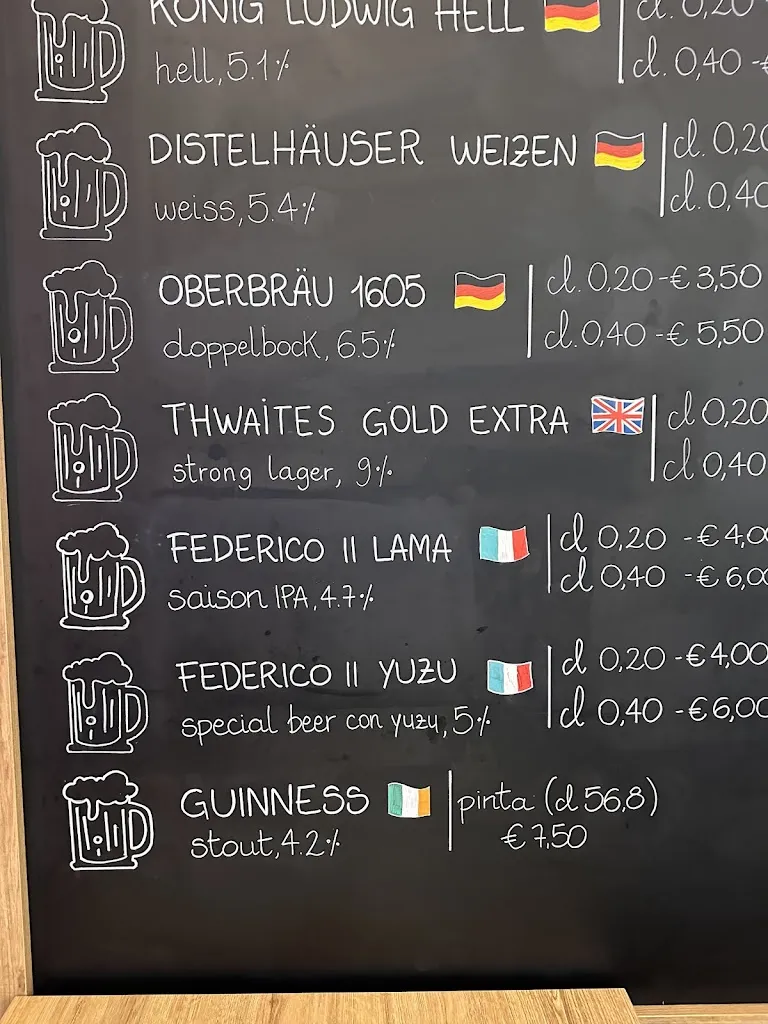 KÖNIG LUDWIG HELL d. 0,20
hell, 5.1% d. 0,40 -€
DISTELHÄUSER WEIZEN d. 0,20
weiss, 5.4% d. 0,40
OBERBRÄU 1605 cl. 0,20 -€ 3,50
doppelbock, 6.5% cl. 0,40 -€ 5,50
THWAITES GOLD EXTRA cl 0,20
strong lager, 9% cl 0,40
FEDERICO II LAMA cl 0,20 -€ 4,00
saison IPA, 4.7% cl 0,40 -€ 6,00
FEDERICO II YUZU cl 0,20 -€ 4,00
special beer con yuzu, 5% cl 0,40 -€ 6,00
GUINNESS pinta (cl 56,8)
stout, 4.2% € 7,50